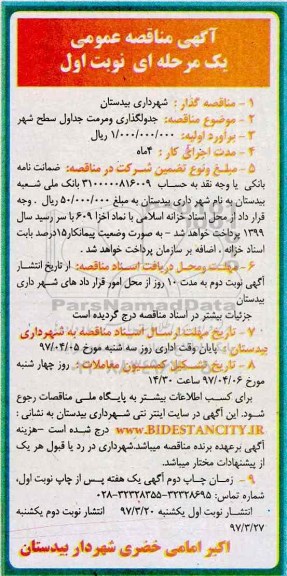 آگهی مناقصه عمومی
یک مرحله ای نوبت اول
۱ - مناقصه گذار : شهرداری بیدستان
۲ - موضوع مناقصه: جدولگذاری ومرمت جداول سطح شهر
۳ - برآورد اولیه: ۱/۰۰۰/۰۰۰/۰۰۰ ریال
۴ - مدت اجرای کار : ۴ماه
۵ - مبلغ ونوع تضمین شرکت در مناقصه: ضمانت نامه
بانکی یا وجه نقد به حساب ۳۱۰۰۰۰۰۸۱۶۰۰۹ بانک ملی شعبه
بیدستان به نام شهر داری بیدستان به مبلغ ۵۰/۰۰۰/۰۰۰ ریال . وجه
قرار داد از محل اسناد خزانه اسلامی با نماد اخزا ۶۰۹ با سر رسید سال
۱۳۹۹ پرداخت خواهد شد - به صورت وضعیت پیمانکار۱۵درصد بابت
اسناد خزانه ، اضافه بر سازمان پرداخت خواهد شد .
۶ - مهلت ومحل دریافت اسناد مناقصه: از تاریخ انتشار
آگهی نوبت دوم به مدت ۱۰ روز از محل امور قرار داد های شهر داری
بیدستان
جزئیات بیشتر در اسناد مناقصه درج گردیده است
۷ - تاریخ مهلت ارسال اسناد مناقصه به شهرداری
بیدستان : پایان وقت اداری روز سه شنبه مورخ ۹۷/۰۴/۰۵
۸ - تاریخ تشکیل کمیسیون معاملات: روز چهار شنبه
مورخ ۹۷/۰۴/۰۶ ساعت ۱۴/۳۰
برای کسب اطلاعات بیشتر به پایگاه ملی مناقصات رجوع
شود. این آگهی در سایت اینتر نتی شهرداری بیدستان به نشانی :
WWW.BIDESTANCITY.IR درج شده است -هزینه
آگهی برعهده برنده مناقصه میباشد.شهرداری در رد یا قبول هر یک
از پیشنهادات مختار میباشد.
۹ - زمان چاپ دوم آگهی یک هفته پس از چاپ نوبت اول.
شماره تماس: ۳۲۲۲۸۶۹۵-۳۲۲۲۸۳۵۵-۰۲۸
انتشار نوبت اول یکشنبه ۹۷/۳/۲۰ انتشار نوبت دوم یکشنبه
۹۷/۳/۲۷
اکبر امامی خضری شهردار بیدستان
ParsNamadData